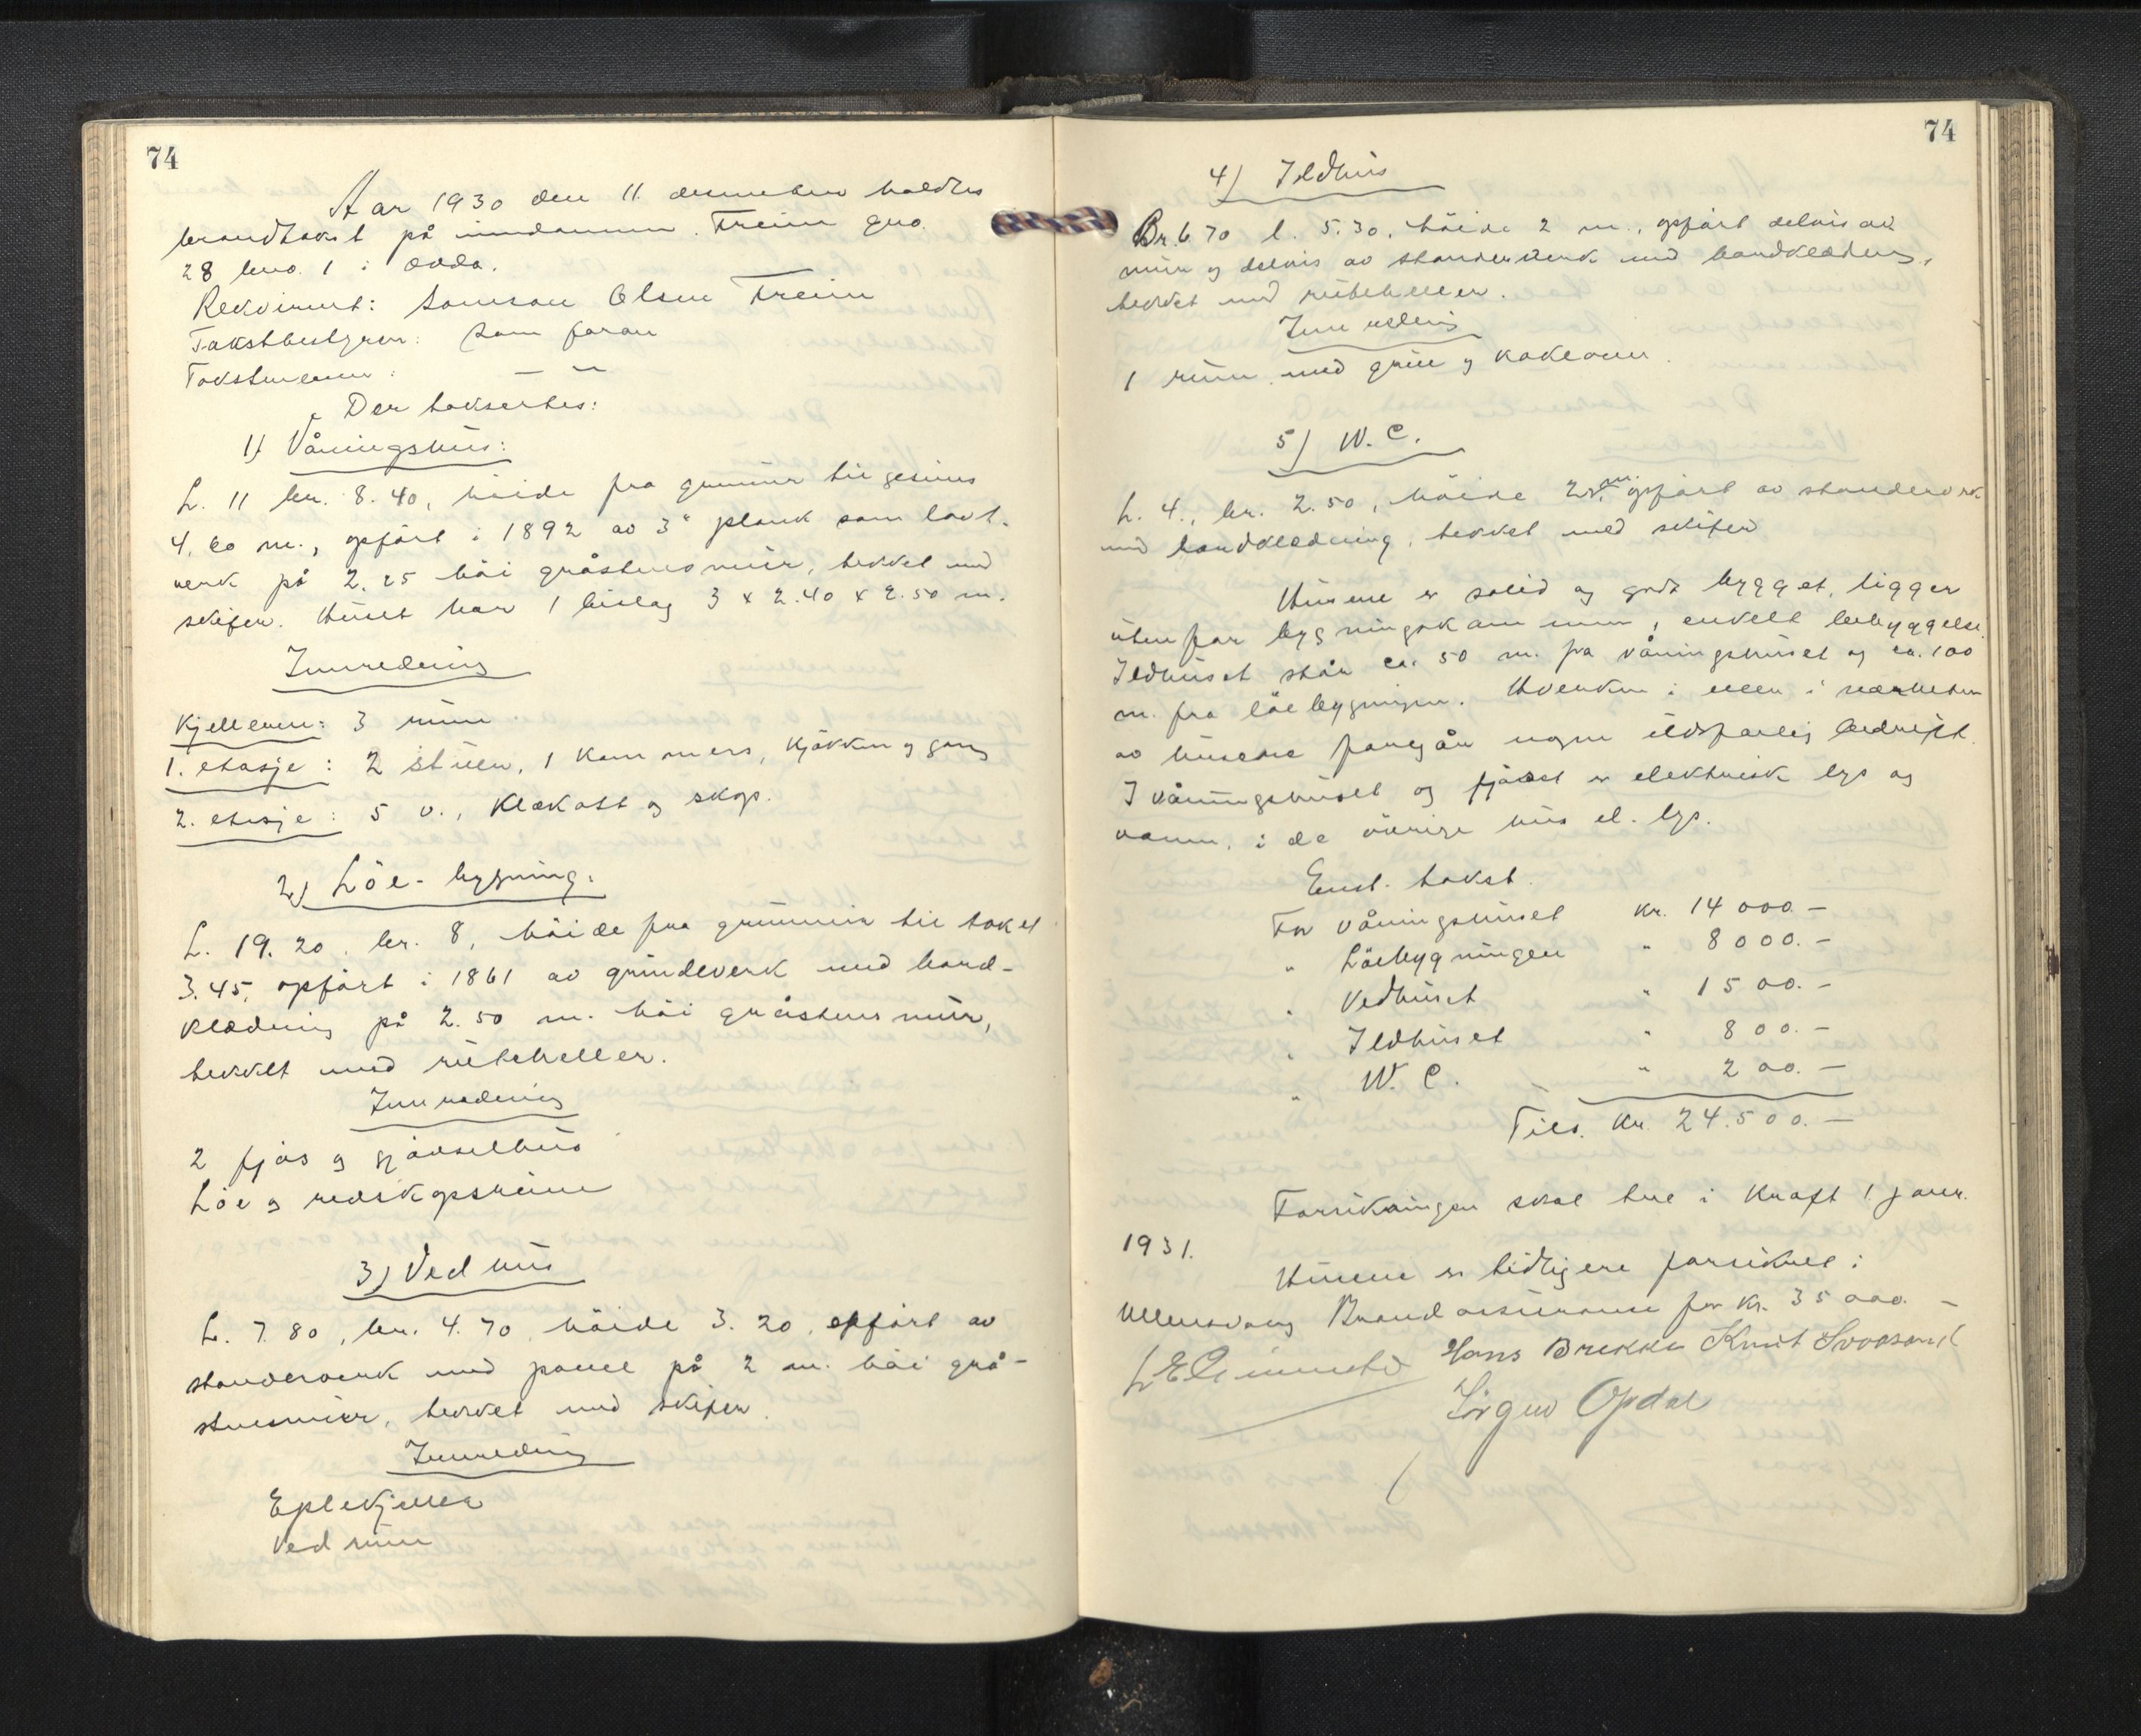 74
Aar 1930 den 11. desember holdtes
brandtakst på eiendommen Freim gno.
28 bno. 1 i Odda.
Rekvirent: Samson Olsen Freim
Takstbestyrer: Som foran
Takstmenn: — " —
Der taksertes:
1) Våningshus:
L. 11 br. 8.40, höide fra grunmur til gesims
4.60 m., opfört i 1892 av 3" plank som lavt-
verk på 2.25 höi gråstensmur, tekket med
skifer. Huset har 1 bislag 3 x 2.40 x 2.50 m.
Innredning
Kjelleren: 3 rum
1. etasje: 2 stuer, 1 kammers, kjökken og gang
2. etasje: 5 v., klækott og skap.
2) Löe-bygning:
L. 19.20, br. 8, höide fra grunmur til taket
3.45, opfört i 1861 av grindeverk med bord-
klædning på 2.50 m. höi gråstensmur,
tekket med ruteheller.
Innredning
2 fjös og gjödselhus
Löe og redskapsrum
3) Vedhus
L. 7.80, br. 4.70, höide 3.20, opfört av
stenderverk med panel på 2 m. höi grå-
stensmur, tekket med skifer.
Innredning
Eplekjeller
Vedrum
74
4) Ildhus
Br. 6.70 l. 5.30, höide 2 m., opfört delvis av
mur og delvis av stenderverk med bordklædning,
tekket med ruteheller.
Innredning
1 rum med grue og kokeovn.
5) W.C.
L. 4., br. 2.50, höide 2 m. opfört av stenderverk
med bordklædning, tekket med skifer
Husene er solid og godt bygget, ligger
utenfor bygningskommun, enkelt bebyggelse.
Ildhuset står ca. 50 m. fra våningshuset og ca. 100
m. fra löebygningen. Hverken i eller i nærheten
av husene foregår nogen ildsfarlig bedrift.
I våningshuset og fjöset er elektrisk lys og
vann, i de övrige hus el. lys.
Enst. takst.
For våningshuset kr. 14 000.—
" Löebygningen " 8000.—
" Vedhuset " 1500.—
" Ildhuset " 800.—
" W.C. " 200.—
Tils. kr. 24.500.—
Forsikringen skal tre i kraft 1. januar
1931.
Husene er tidligere forsikret i
Ullensvang Brandassurance for kr. 35 000.—
Hans Brekke Knut
Jörgen Opdal